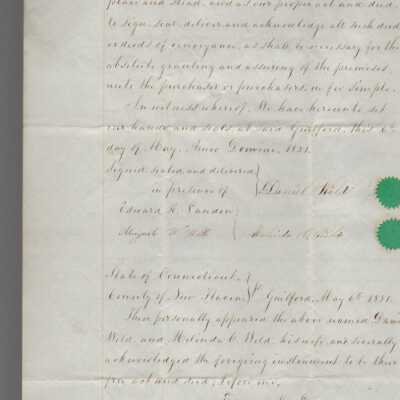 place and stead, and as our proper act and deed,
to sign, seal, deliver and acknowledge all such deed
or deeds of conveyance, as shall be necessary for the
absolute granting and assuring of the premises
unto the purchaser or purchasers, in fee simple.
In witness whereof, We have hereunto set
our hands and seals, at said Guilford, this 6th
day of May, Anno Domini, 1851.
Signed, sealed, and delivered
in presence of Daniel Weld
Edward R. Landon
State of Connecticut,
County of New Haven, ss Guilford, May 6th 1851.
Then personally appeared the above named Dani
Weld, and Melinda C. Weld, his wife, and severally
acknowledged the foregoing instrument to be their
free act and deed, before me,